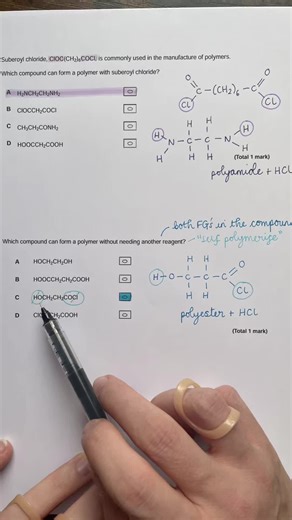 Suberoyl chloride, ClOC(CH₂)₆COCl is commonly used in the manufacture of polymers.
Which compound can form a polymer with suberoyl chloride?
A H₂NCH₂CH₂NH₂
B ClOCCH₂COCl
C CH₃CH₂CONH₂
D HOOCCH₂COOH
O O
C-(CH₂)₆-C
Cl Cl
H H
H N-C-C-N H
H H H H
(Total 1 mark)
polyamide + HCl
both FG's in the compound
Which compound can form a polymer without needing another reagent? - "self polymerise"
A HOCH₂CH₂OH
B HOOCCH₂CH₂COOH
C HOCH₂CH₂COCl
D COOH
H H O
H-O-C-C-C
H H Cl
polyester + HCl
(Total 1 mark)